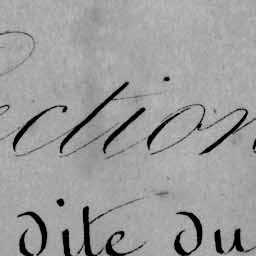 ection
dite du